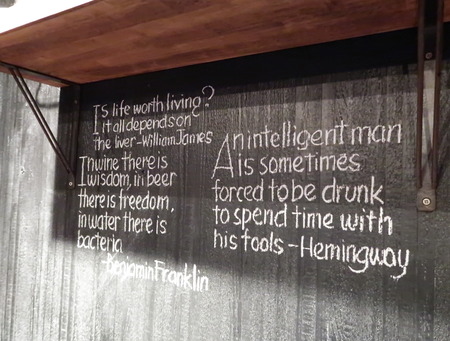 Is life worth living?
It all depends on
the liver-William James
In wine there is
wisdom, in beer
there is freedom,
in water there is
bacteria
-Benjamin Franklin
An intelligent man
is sometimes
forced to be drunk
to spend time with
his fools-Hemingway